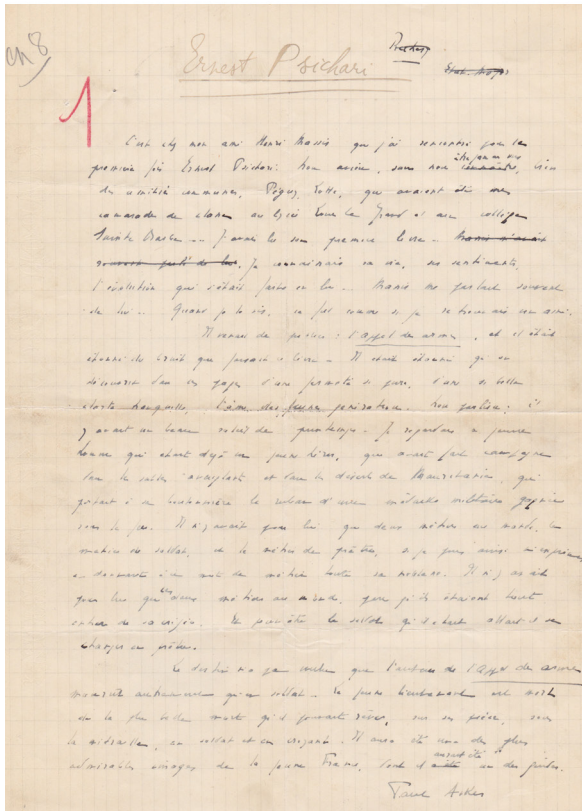 ch 8
Ernest Psichari
1
C'est chez mon ami Henri Massis que j'ai rencontré pour la
première fois Ernest Psichari. Nous avions, sans nous être jamais vus, bien
des amitiés communes, Péguy, Lotte, qui avaient été mes
camarades de classe au lycée Louis le Grand et au collège
Sainte Barbe... J'avais lu son premier livre... Massis n'avait
souvent parlé de lui. Je connaissais sa vie, ses sentiments,
l'évolution qui s'était faite en lui... Massis me parlait souvent
de lui... Quand je le vis, ce fut comme si je retrouvais un ami.
Il venait de publier : l'appel des armes, et il était
étonné du bruit que faisait ce livre... Il était étonné qu'on
découvrit dans ces pages d'une fermeté si pure, d'une si belle
clarté tranquille, l'âme des jeunes générations. Non parti ; il
y avait un beau soleil de printemps. Je regardais ce jeune
homme qui était déjà un jeune héros, qui avait fait campagne
dans les sables et dans le désert de Mauritanie, qui
portait à sa boutonnière le ruban d'une médaille militaire gagnée
sous le feu. Il n'y avait pour lui que deux métiers au monde, le
métier de soldat, et le métier de prêtre, et je puis aussi
en donnant à ce mot de métier toute sa noblesse. Il n'y avait
pour lui que ces deux métiers au monde, parce qu'ils étaient tout
entier de sacrifice. Et peut-être le soldat qu'il était allait-il se
changer en prêtre.
Le destin n'a pas voulu que l'auteur de l'appel des armes
mourût autrement qu'en soldat... Le jeune lieutenant est mort
de la plus belle mort qu'il pouvait rêver, sur ses pièces, sous
la mitraille, en soldat et en croyant. Il aura été une des plus
admirables images de la jeune France, dont il aurait été un des guides.
Paul Acker